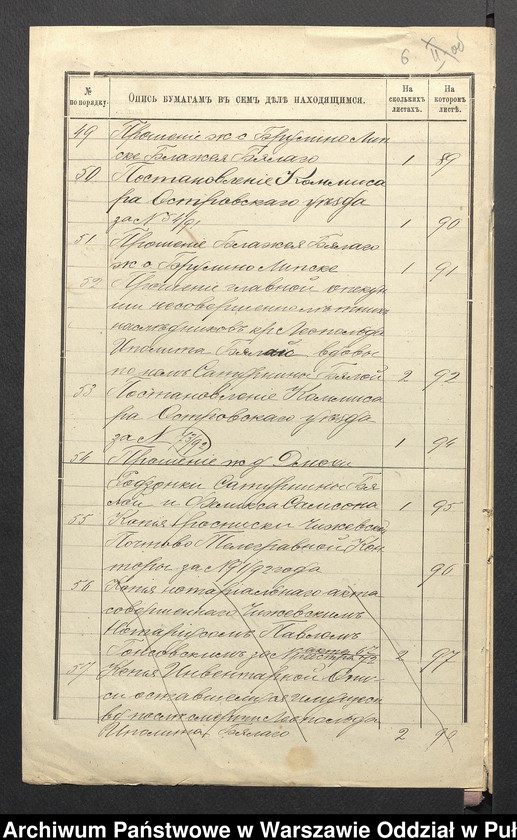 6
№ по порядку.
Опись бумагамъ въ семъ дѣлѣ находящимся.
На сколькихъ листахъ.
На которомъ листѣ.
49 Прошеніе ж. с. Брулино Лип
ске Блажея Бялаго 1 89
50 Постановленіе Коммиса
ра Островскаго уѣзда
за № 34/91 1 90
51 Прошеніе Блажея Бялаго
ж. с. Брулино Липске 1 91
52 Прошеніе главной опеку
нши несовершеннолѣтнихъ
наслѣдниковъ кр. Леопольда
Иполита Бялаго вдовы
по немъ Сатурнины Бялой 2 92
53 Постановленіе Коммиса
ра Островскаго уѣзда
за № 1 94
54 Прошеніе ж. д.
Годзонки Сатурнины Бя
лой и Феликса Самсона 1 95
55 Копія росписки Чижевской
Почтово Телеграфной Кон
торы за № 1/92 года 96
56 Копія нотаріальнаго акта
совершеннаго Чижевскимъ
Нотаріусомъ Павломъ
за № 2 97
57 Копія Инвентарной Опи
си оставшемуся имуществ
въ послѣ смерти Леопольда
Иполита Бялаго 2 99
Archiwum Państwowe w Warszawie Oddział w Puł